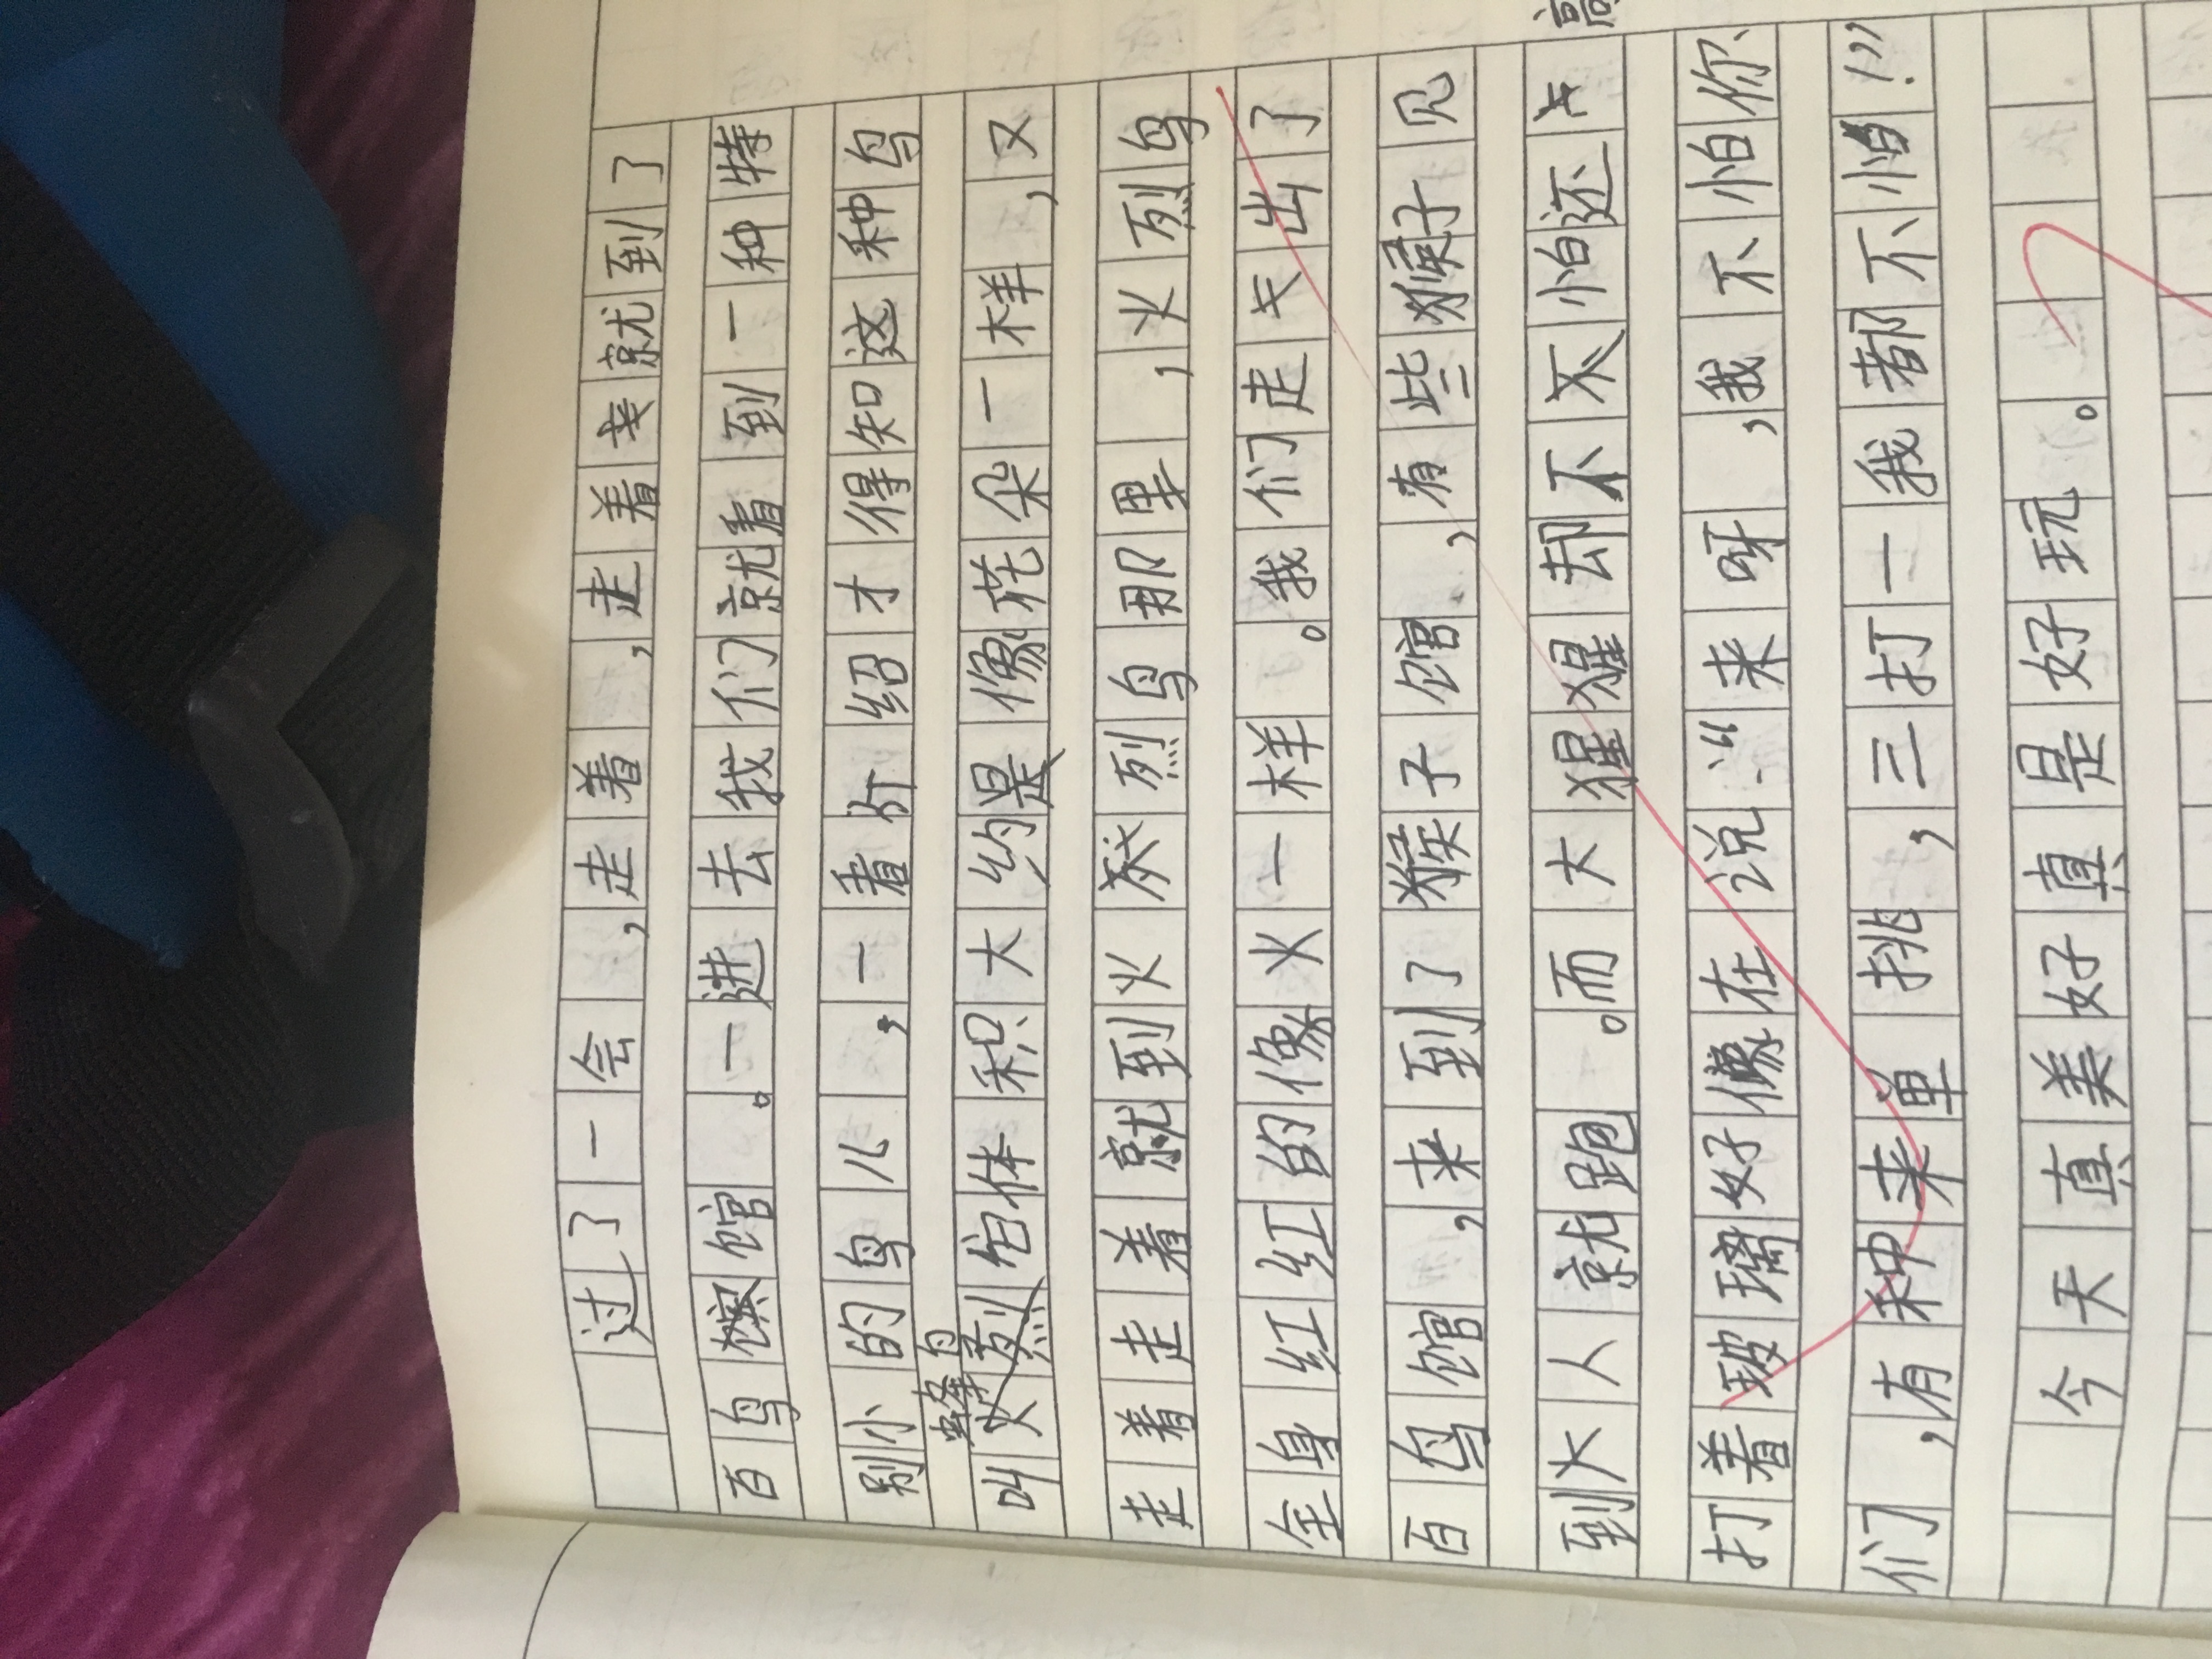 过了一会，走着，走着就到了
百鸟馆。一进去我们就看到一种特
别小的鸟儿，一看介绍才得知这种鸟
叫蜂鸟它体积大约是像花朵一样，又
走着走着就到火烈鸟那里，火烈鸟
全身红红的像火一样。我们走出了
百鸟馆，来到了猴子馆，有些猴子见
到大人就跑。而大猩猩却不怕还
打着玻璃好像在说：“来呀，我不怕你
们，有种来单挑，三打一我都不怕！”
今天真美好真是好玩。